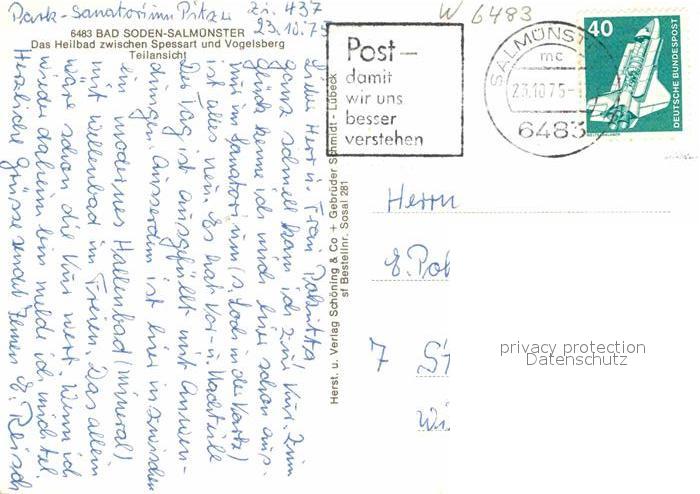 Park-Sanatorium Pitz Zi. 437
23.10.75
6483 BAD SODEN-SALMÜNSTER
Das Heilbad zwischen Spessart und Vogelsberg
Teilansicht
Lieber Herr u. Frau
ganz schnell kam ich zur Kur. Zum
Glück kenne ich mich hier schon aus.
nur im Sanatorium (s. Loch in der Karte)
ist alles neu. Es hat Vor- u. Nachteile
Der Tag ist ausgefüllt mit Anwen-
dungen. Ausserdem ist hier inzwischen
ein modernes Hallenbad (Mineral)
mit Wellenbad im Freien. Das allein
wäre schon die Kur wert. Wenn ich
wieder daheim bin melde ich mich tel.
Herzliche Grüsse sendet Ihnen E. Reisch
Herst. u. Verlag Schöning & Co + Gebrüder Schmidt - Lübeck
sf Bestellnr. Sosal 281
W 6483
Post-
damit
wir uns
besser
verstehen
SALMÜNST
mc
23.10.75-
6483
40
DEUTSCHE BUNDESPOST
Herrn
E. Pol
7 St
Wi
privacy protection
Datenschutz